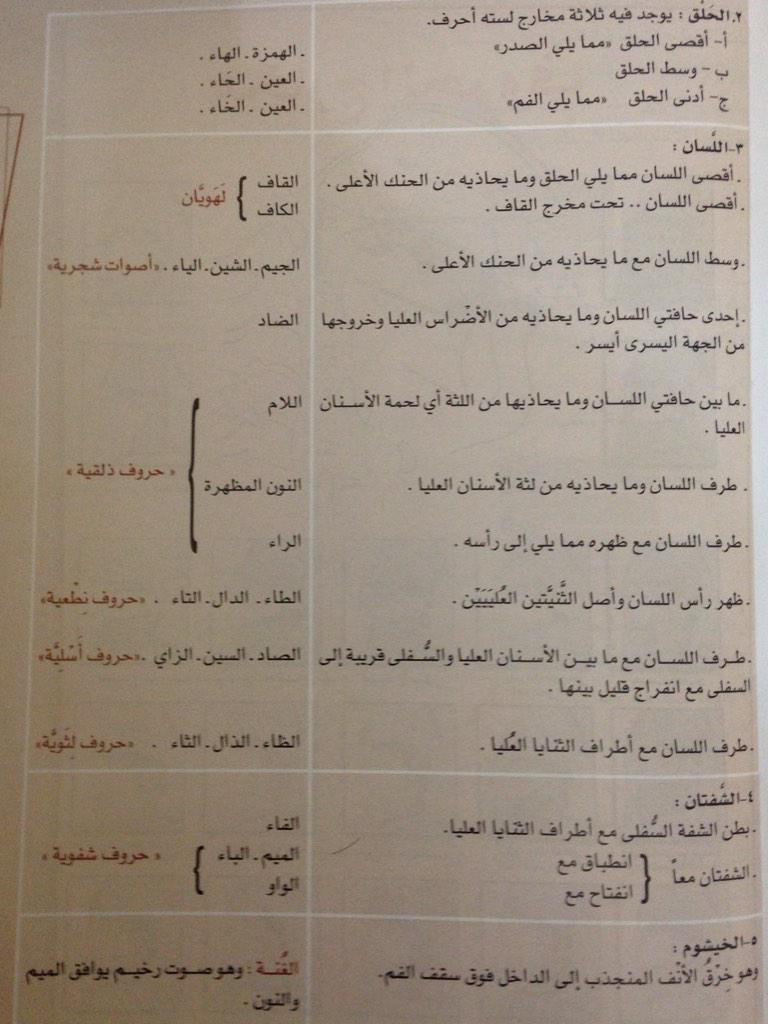 ٢.الحَلْق : يوجد فيه ثلاثة مخارج لسته أحرف.
أ- أقصى الحلق «مما يلي الصدر»
. الهمزة . الهاء .
ب- وسط الحلق
. العين . الحَاء .
ج- أدنى الحلق «مما يلي الفم»
. العين . الخَاء .
٣-اللَّسان :
. أقصى اللسان مما يلي الحلق وما يحاذيه من الحنك الأعلى .
القاف
. أقصى اللسان .. تحت مخرج القاف .
الكاف
لَهَويَّان
. وسط اللسان مع ما يحاذيه من الحنك الأعلى .
الجيم . الشين . الياء . «أصوات شجرية»
. إحدى حافتي اللسان وما يحاذيه من الأضْراس العليا وخروجها
من الجهة اليسرى أيسر .
الضاد
. ما بين حافتي اللسـان وما يحاذيها من اللثة أي لحمة الأسـنان
العليا .
اللام
. طرف اللسان وما يحاذيه من لثة الأسنان العليا .
النون المظهرة
« حروف ذلقية »
. طرف اللسان مع ظهره مما يلي إلى رأسه .
الراء
. ظهر رأس اللسان وأصل الثَّنيَّتين العُليَيَيْن .
الطاء . الدال . التاء . «حروف نِطْعية»
. طـرف اللسـان مع ما بيـن الأسـنان العليا والسُّـفلى قريبة إلى
السفلى مع انفراج قليل بينها .
الصاد . السين . الزاي . «حروف أَسْليَّة»
. طرف اللسان مع أطراف الثنايا العُليا .
الظاء . الذال . الثاء . «حروف لِثَويَّة»
٤-الشَّفتان :
. بطن الشفة السُّفلى مع أطراف الثنايا العليا.
الفاء
. الشفتان معاً
انطباق مع
الميم . الباء
انفتاح مع
الواو
« حروف شفوية »
٥-الخيشوم :
وهو خِرْقُ الأنْف المنجذب إلى الداخل فوق سقف الفم.
الغُنـة : وهو صـوت رخيـم يوافق الميم
والنون .